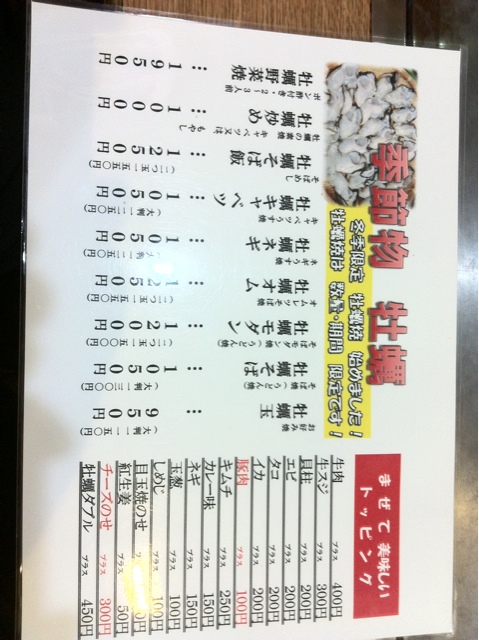 季節物 牡蠣
冬季限定 牡蠣焼 始めました!
牡蠣焼は 数量・期間 限定です!
お好み焼
牡蠣玉 :: 950円
そば焼(うどん焼)
牡蠣そば :: 1050円
そばモダン(うどん焼)
牡蠣モダン :: 1200円
オムレツそば焼
牡蠣オム :: 1250円
ネギうす焼
牡蠣ネギ :: 1050円
キャベツうす焼
牡蠣キャベツ :: 1050円
そばめし
牡蠣そば飯 :: 1250円
牡蠣の素焼 キャベツ又は もやし
牡蠣炒め :: 1000円
ポン酢付き・2~3人前
牡蠣野菜焼 :: 1950円
まぜて美味しい
トッピング
牛肉 プラス 400円
牛スジ プラス 300円
貝柱 プラス 200円
エビ プラス 200円
タコ プラス 200円
イカ プラス 200円
豚肉 プラス 100円
キムチ プラス 250円
カレー味 プラス 150円
ネギ プラス 150円
玉葱 プラス 100円
しめじ プラス 100円
目玉焼のせ プラス
紅生姜 プラス 50円
チーズのせ プラス 300円
牡蠣ダブル プラス 450円